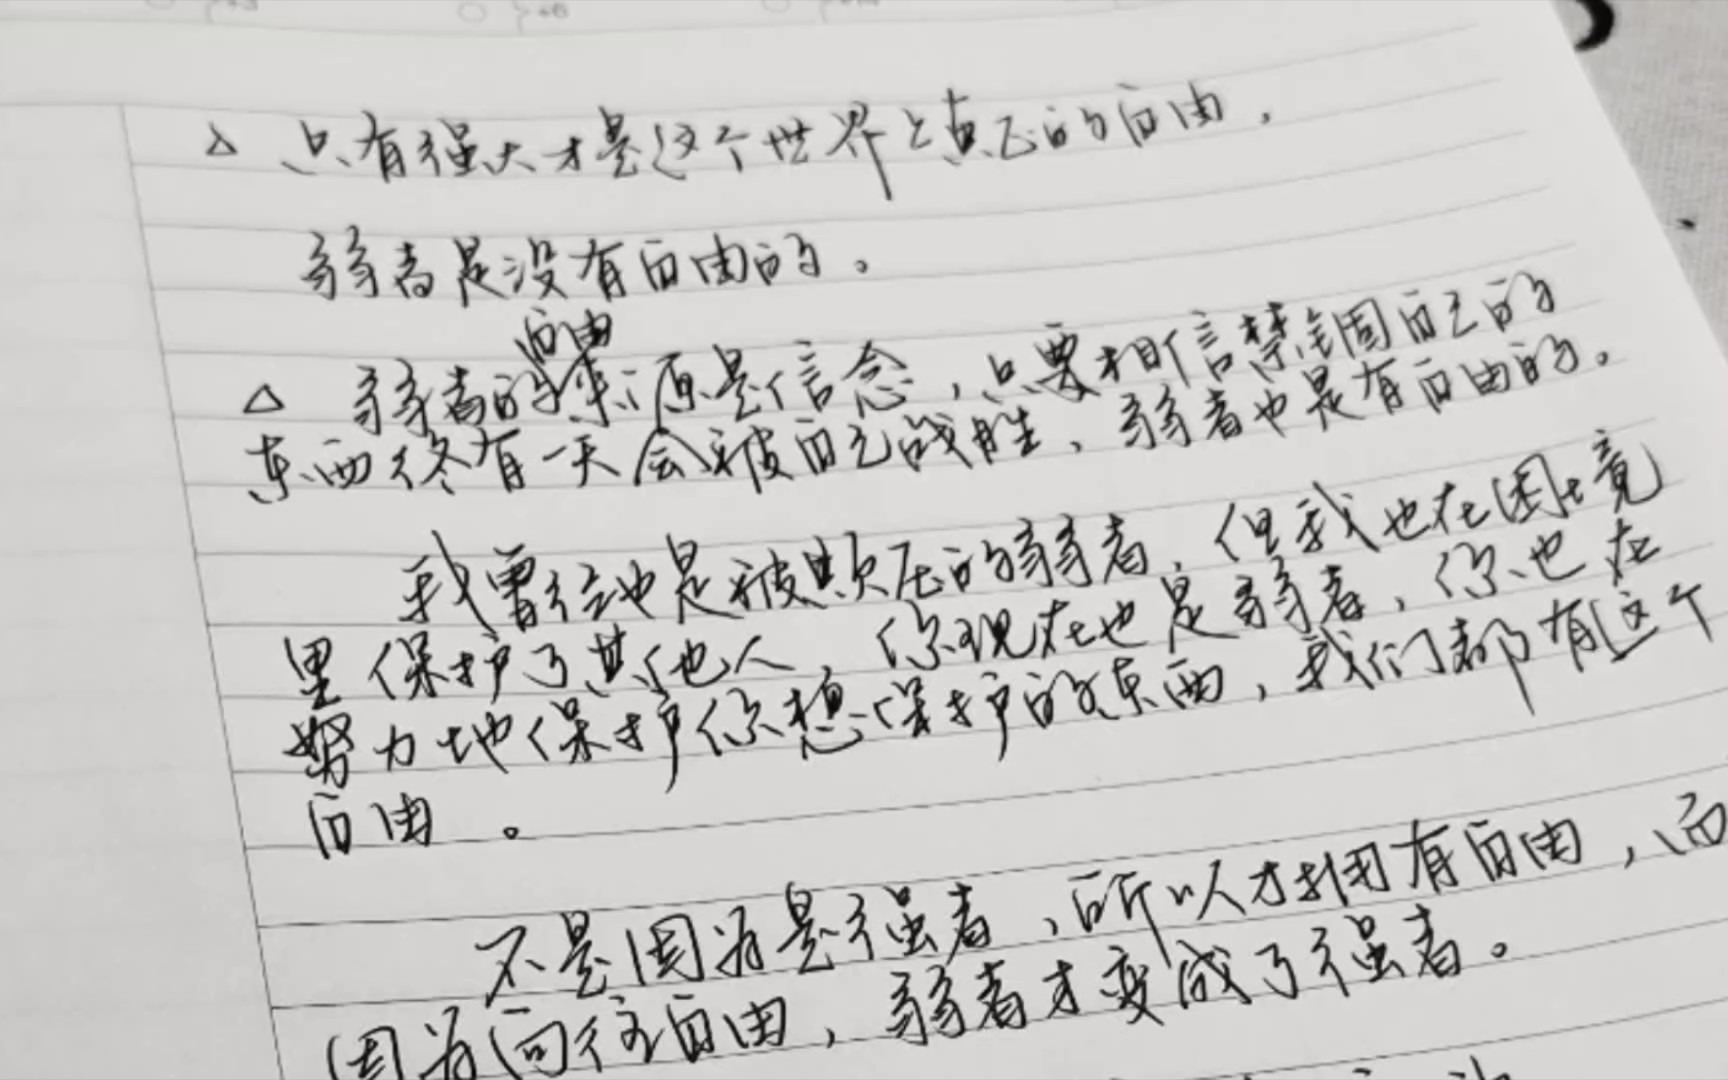 △ 只有强大才是这个世界上真正的自由，
弱者是没有自由的。
自由
△ 弱者的来源是信念，只要相信禁锢自己的
东西终有一天会被自己战胜，弱者也是有自由的。
我曾经也是被欺压的弱者，但我也在困境
里保护了其他人，你现在也是弱者，你也在
努力地保护你想保护的东西，我们都有这个
自由。
不是因为是强者，所以才拥有自由，而
因为向往自由，弱者才变成了强者。